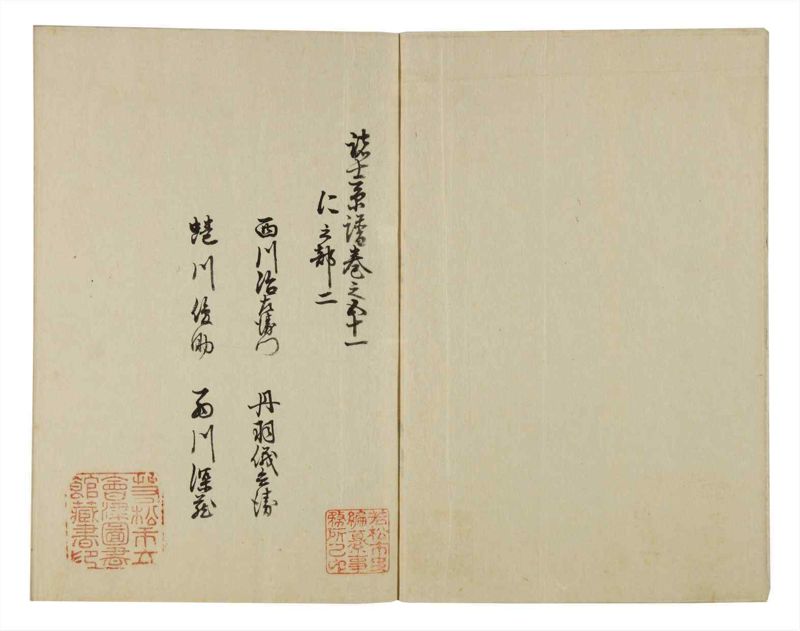 諸士系譜巻之五十一
仁之部二
西川治左衛門　丹羽儀兵衛
蜷川俊助　西川源蔵
若松市史
編纂事
務所之印
若松市立
會津圖書
館藏書印